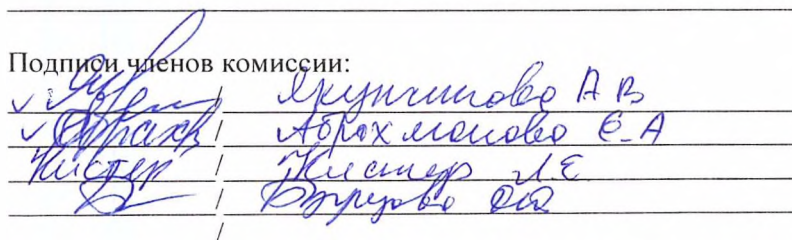 Подписи членов комиссии:
/ Якунчикова А В
/ Абрахманова Е.А
Кистер / Кистер Л.Е
/
/